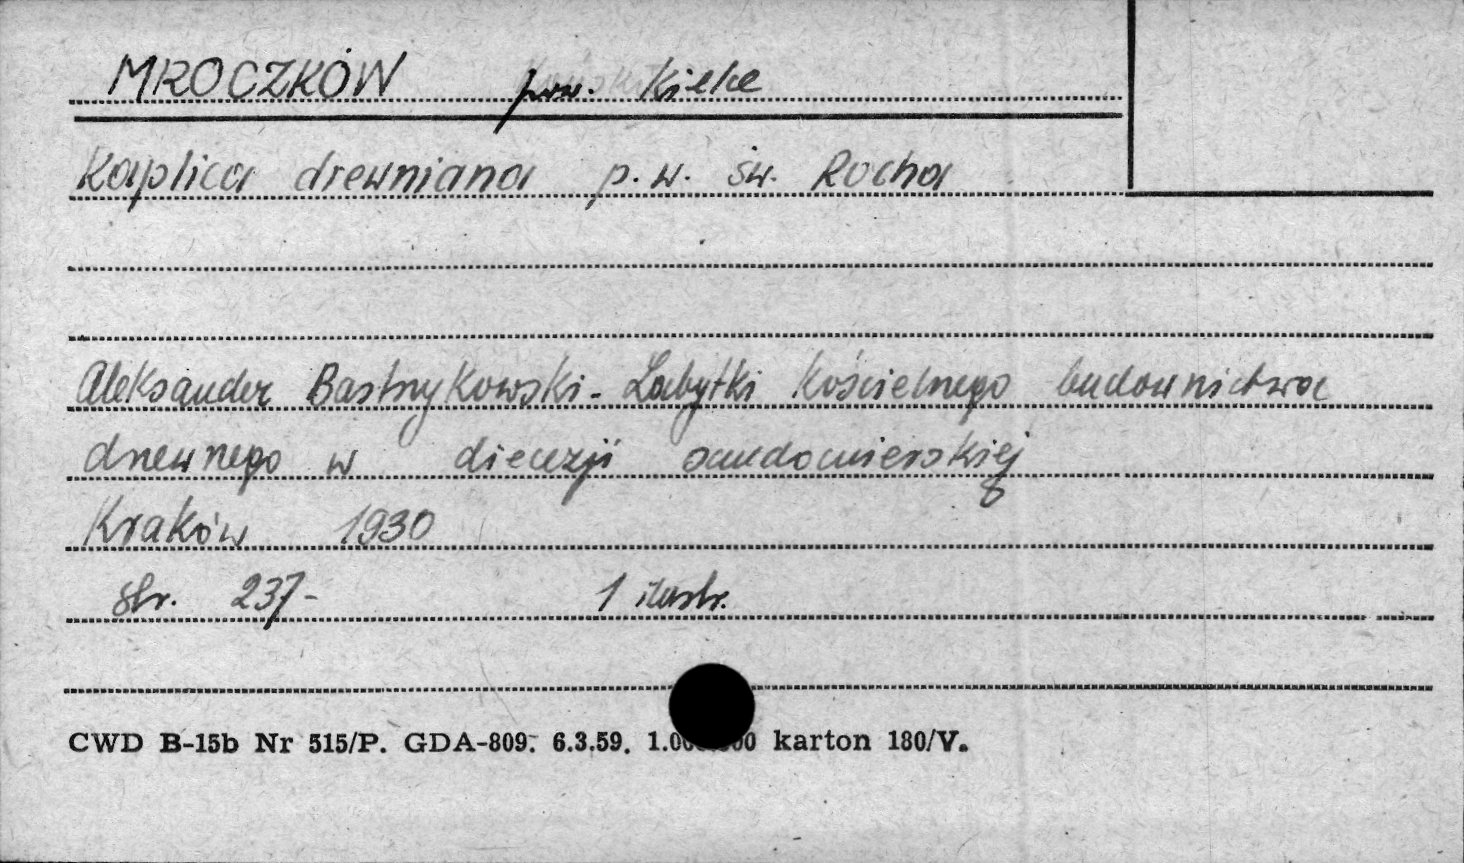 MROCZKÓW pow. Kielce
Kaplica drewniana p.w. św. Rocha
Aleksander Bastrzykowski - Zabytki kościelnego budownictwa
drewnego w diecezji sandomierskiej
Kraków 1930
str. 237- 1 ilustr.
CWD B-15b Nr 515/P. GDA-809. 6.3.59. karton 180/V.